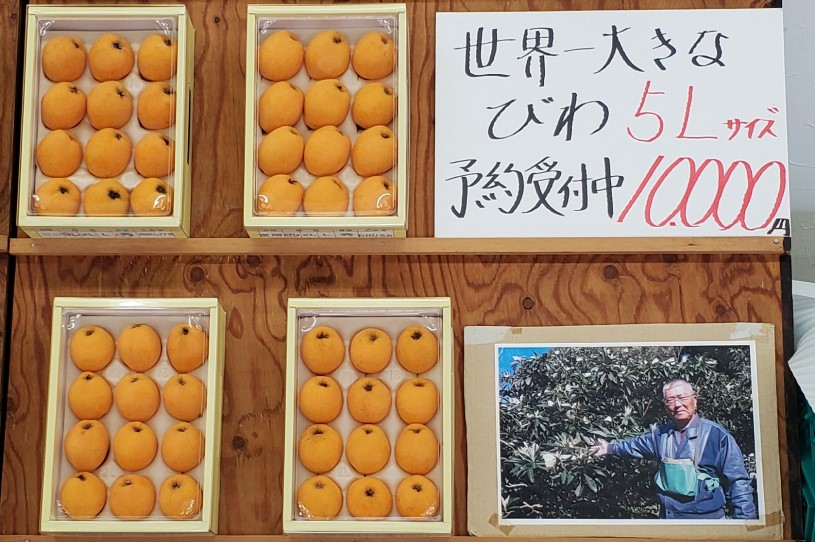 世界一大きな
びわ 5Lサイズ
予約受付中 10,000円